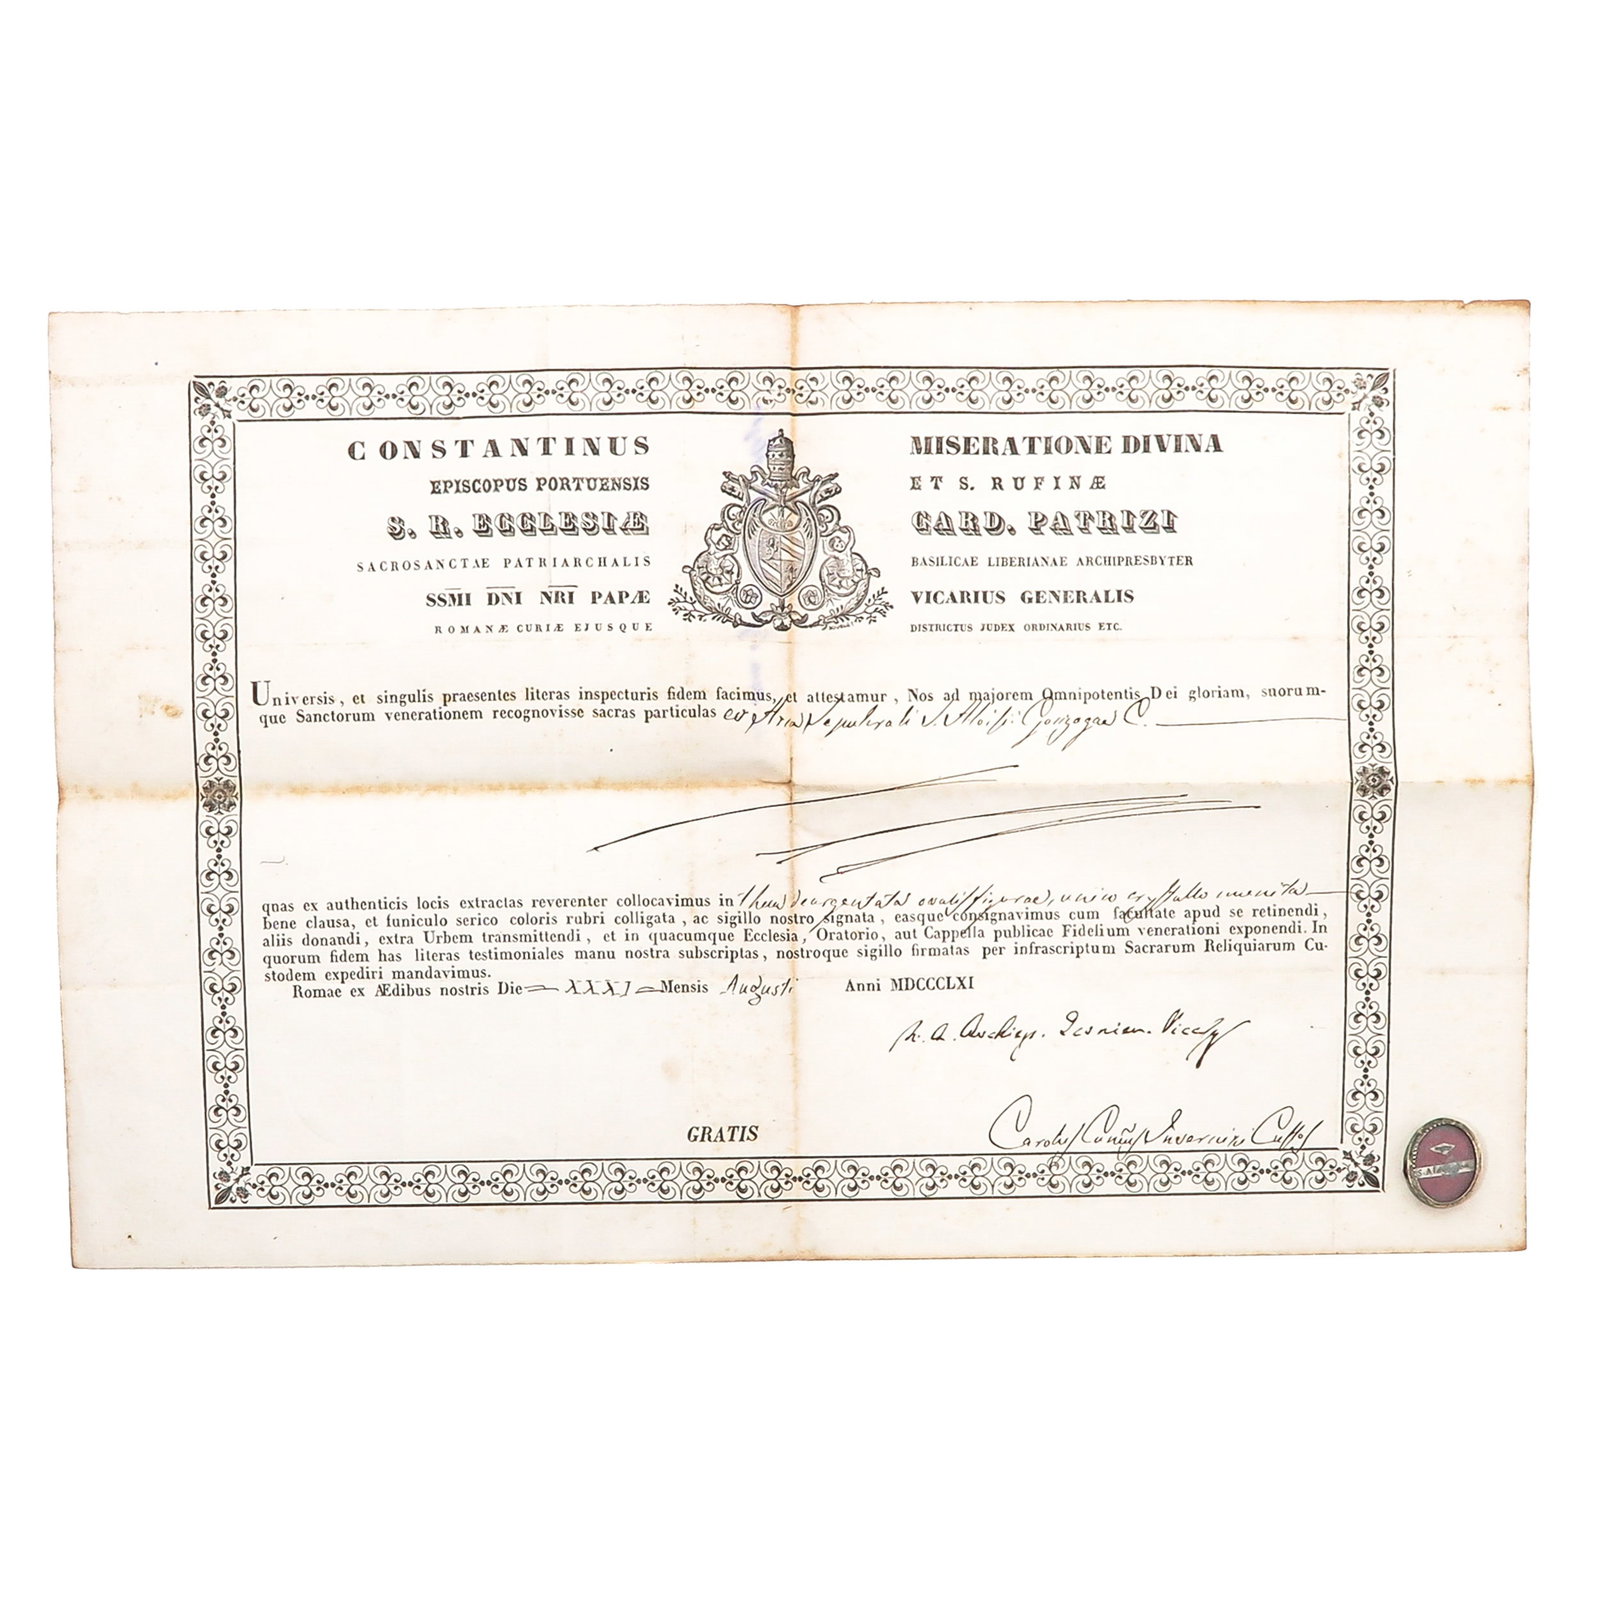 CONSTANTINUS MISERATIONE DIVINA
EPISCOPUS PORTUENSIS ET S. RUFINÆ
S. R. ECCLESIÆ CARD. PATRIZI
SACROSANCTAE PATRIARCHALIS BASILICAE LIBERIANAE ARCHIPRESBYTER
SSMI DNI NRI PAPÆ VICARIUS GENERALIS
ROMANÆ CURIÆ EJUSQUE DISTRICTUS JUDEX ORDINARIUS ETC.
Universis, et singulis praesentes literas inspecturis fidem facimus, et attestamur, Nos ad majorem Omnipotentis Dei gloriam, suorum-
que Sanctorum venerationem recognovisse sacras particulas ex Arca Sepulcrali S. Aloisii Gonzagae C.
quas ex authenticis locis extractas reverenter collocavimus in theca deargentata ovalis figurae, unico crystallo munita
bene clausa, et funiculo serico coloris rubri colligata, ac sigillo nostro signata, easque consignavimus cum facultate apud se retinendi,
aliis donandi, extra Urbem transmittendi, et in quacumque Ecclesia, Oratorio, aut Cappella publicae Fidelium venerationi exponendi. In
quorum fidem has literas testimoniales manu nostra subscriptas, nostroque sigillo firmatas per infrascriptum Sacrarum Reliquiarum Cu-
stodem expediri mandavimus.
Romae ex Ædibus nostris Die XXXI Mensis Augusti Anni MDCCCLXI
A. Archiep. Vicesg
GRATIS
Carolus Can.us Invernizi Custos